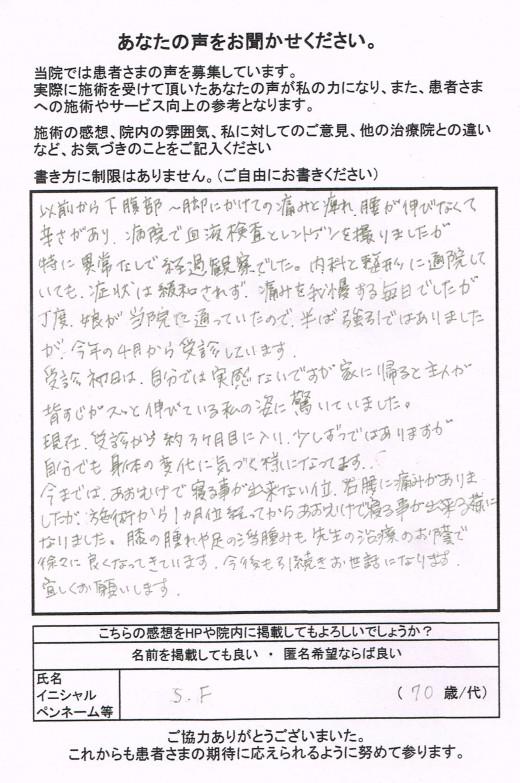 あなたの声をお聞かせください。
当院では患者さまの声を募集しています。
実際に施術を受けて頂いたあなたの声が私の力になり、また、患者さま
への施術やサービス向上の参考となります。
施術の感想、院内の雰囲気、私に対してのご意見、他の治療院との違い
など、お気づきのことをご記入ください
書き方に制限はありません。(ご自由にお書きください)
以前から下腹部～脚にかけての痛みと痺れ、腰が伸びなくて
辛さがあり、病院で血液検査とレントゲンを撮りましたが
特に異常なしで経過観察でした。内科と整形に通院して
いても、症状は緩和されず、痛みを我慢する毎日でしたが
丁度、娘が当院に通っていたので、半ば強引ではありました
が、今年の4月から受診しています。
受診初日は、自分では実感ないですが家に帰ると主人が
背すじがスッと伸びている私の姿に驚いていました。
現在、受診から約3ヶ月目に入り、少しずつではありますが
自分でも身体の変化に気づく様になってます。
今までは、あおむけで寝る事が出来ない位、右腰に痛みがありま
したが、施術から1カ月位経ってからあおむけで寝る事が出来る様に
なりました。膝の腫れや足の浮腫みも先生の治療のお陰で
徐々に良くなってきています。今後も引続きお世話になります。
宜しくお願いします。
こちらの感想をHPや院内に掲載してもよろしいでしょうか？
名前を掲載しても良い ・ 匿名希望ならば良い
氏名
イニシャル
ペンネーム等
S.F
( 70 歳/代)
ご協力ありがとうございまいた。
これからも患者さまの期待に応えられるように努めて参ります。